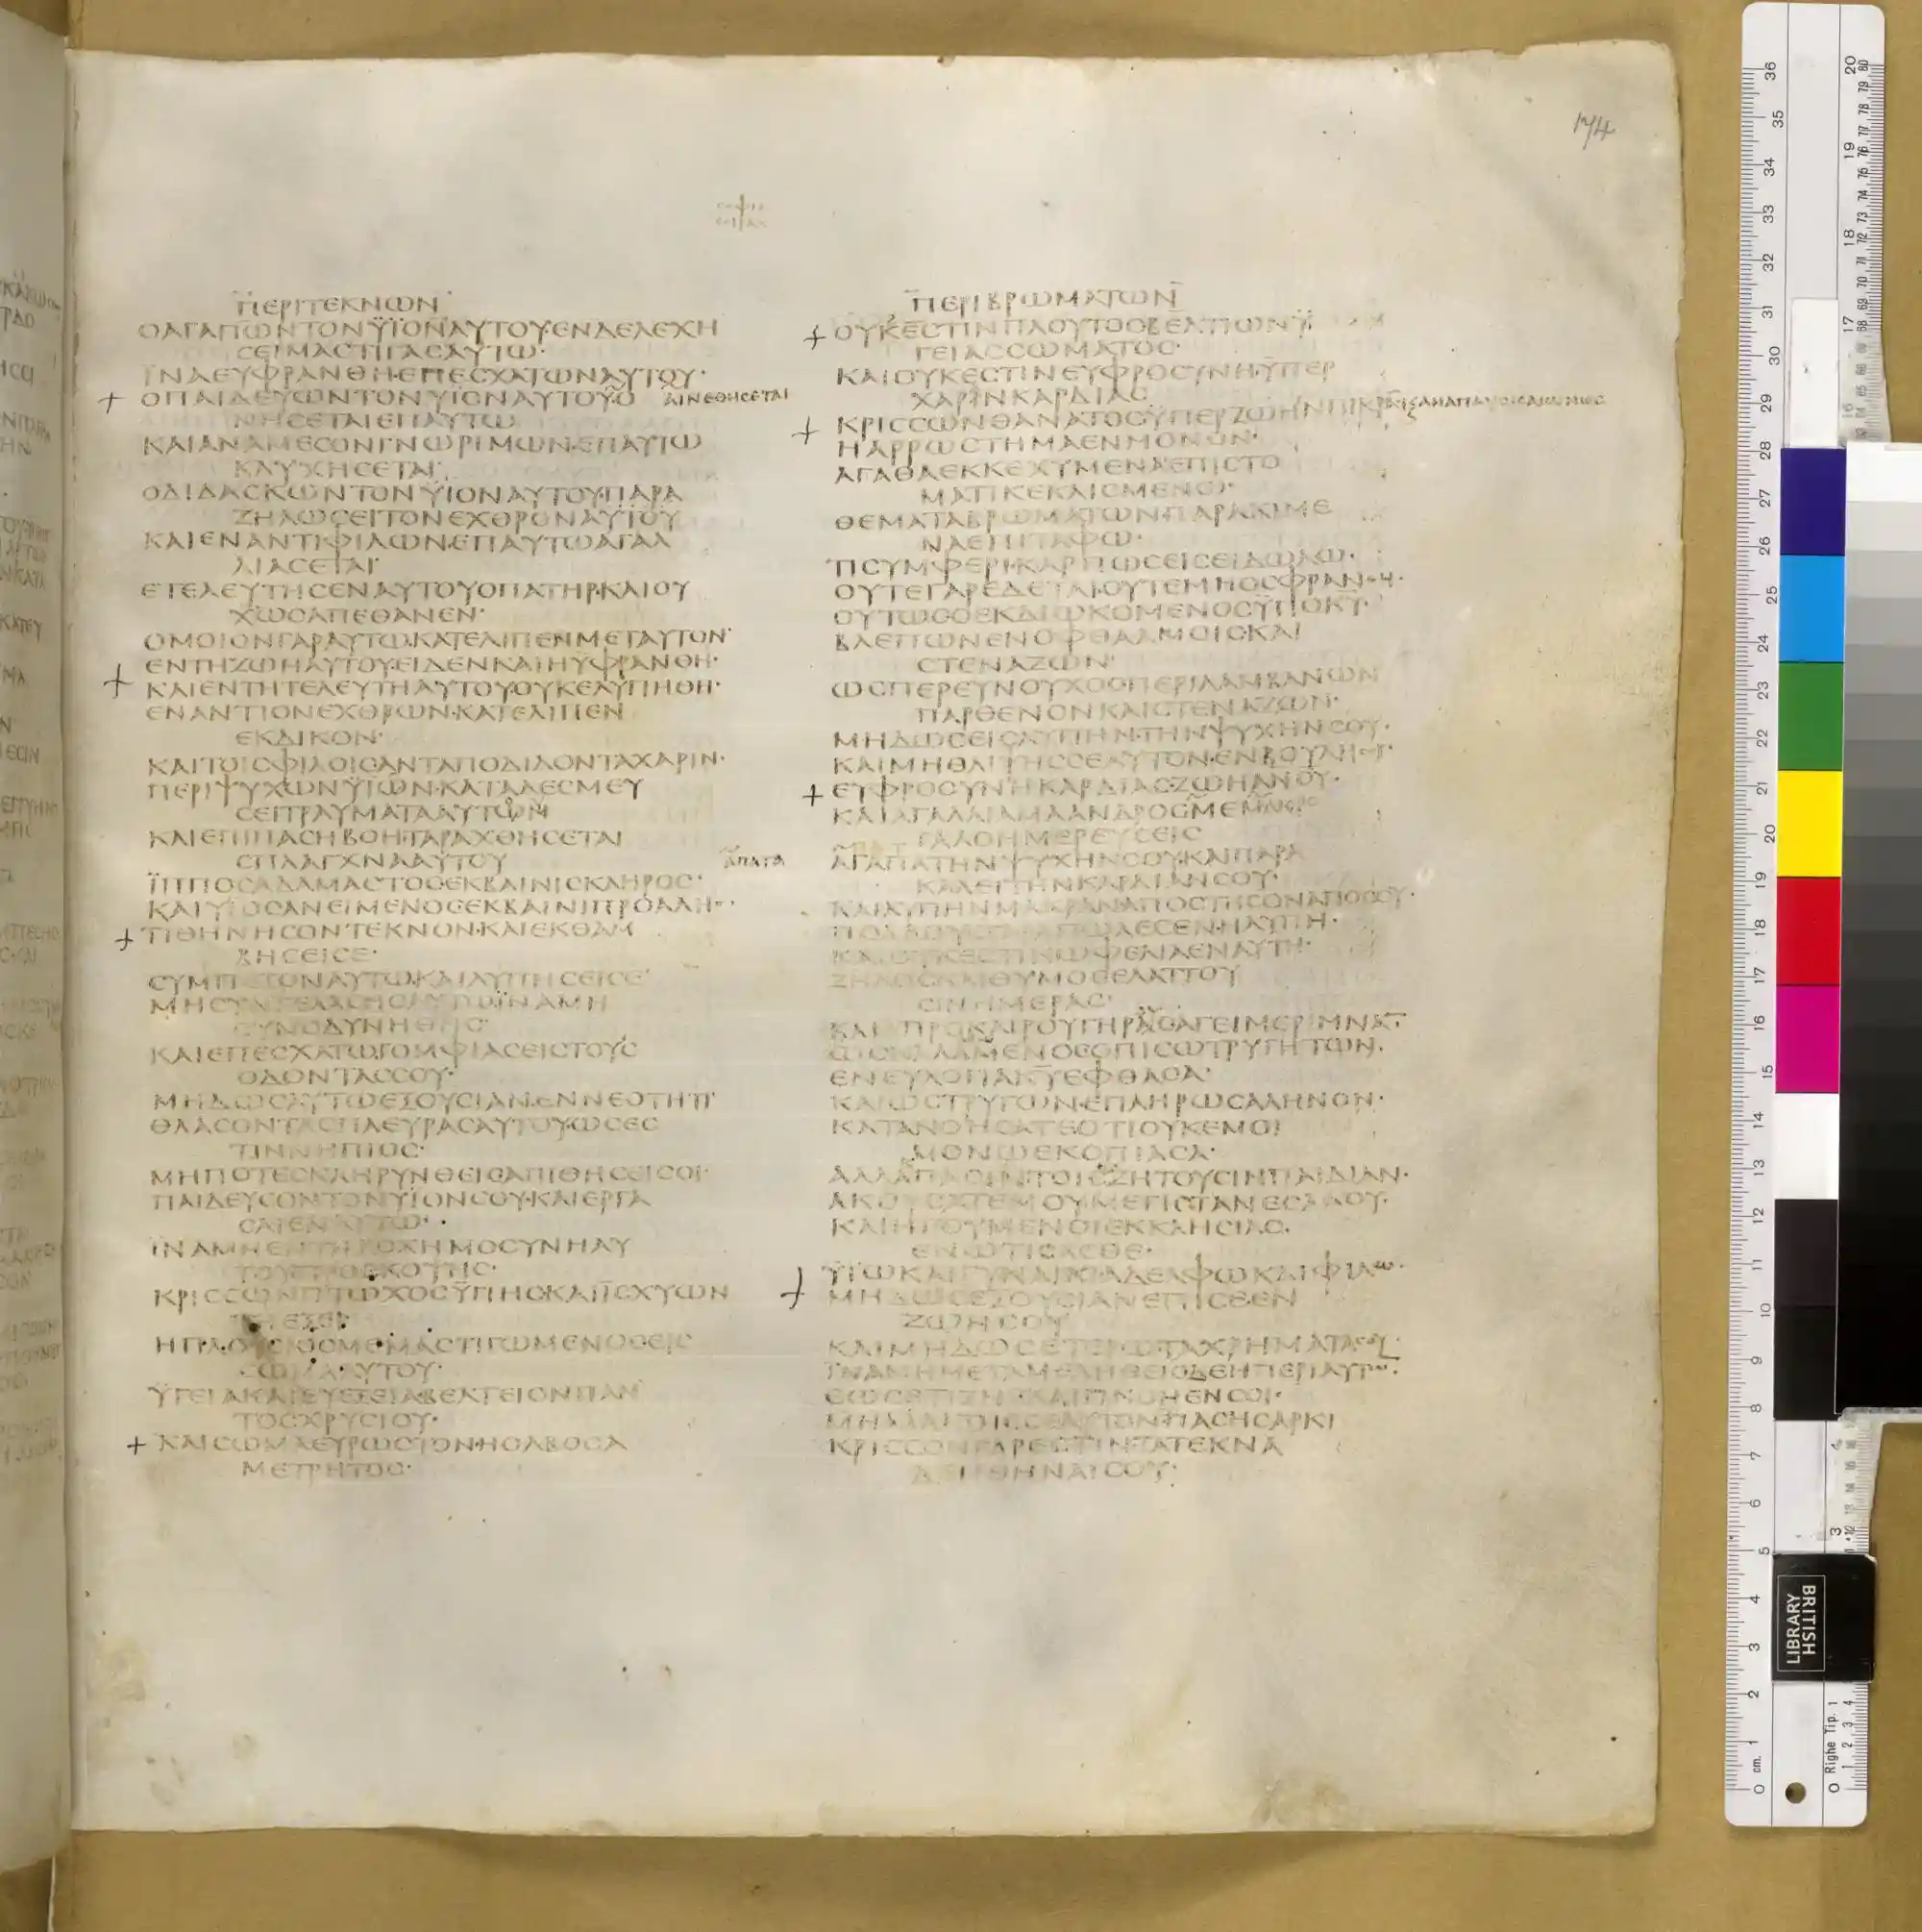 174
ΣΟΦΙΑ
ΣΙΡΑΧ
ΠΕΡΙΤΕΚΝΩΝ
ΟΑΓΑΠΩΝΤΟΝΫΪΟΝΑΥΤΟΥΕΝΔΕΛΕΧΗ
ϹΕΙΜΑϹΤΙΓΑϹΑΥΤΩ·
ΪΝΑΕΥΦΡΑΝΘΗ·ΕΠΕϹΧΑΤΩΝΑΥΤΟΥ·
ΟΠΑΙΔΕΥΩΝΤΟΝΥΪΟΝΑΥΤΟΥΟ ΑΙΝΕΘΗϹΕΤΑΙ
ΝΗϹΕΤΑΙΕΠΑΥΤΩ
ΚΑΙΑΝΑΜΕϹΟΝΓΝΩΡΙΜΩΝ·ΕΠΑΥΤΩ
ΚΑΥΧΗϹΕΤΑΙ·
ΟΔΙΔΑϹΚΩΝΤΟΝΫΙΟΝΑΥΤΟΥ·ΠΑΡΑ
ΖΗΛΩϹΕΙΤΟΝΕΧΘΡΟΝΑΥΤΟΥ
ΚΑΙΕΝΑΝΤΙΦΙΛΩΝ·ΕΠΑΥΤΩΑΓΑΛ
ΛΙΑϹΕΤΑΙ·
ΕΤΕΛΕΥΤΗϹΕΝΑΥΤΟΥΟΠΑΤΗΡ·ΚΑΙΟΥ
ΧΩϹΑΠΕΘΑΝΕΝ·
ΟΜΟΙΟΝΓΑΡΑΥΤΩ·ΚΑΤΕΛΙΠΕΝΜΕΤΑΥΤΟΝ·
ΕΝΤΗΖΩΗΑΥΤΟΥ·ΕΙΔΕΝΚΑΙΗΥΦΡΑΝΘΗ·
ΚΑΙΕΝΤΗΤΕΛΕΥΤΗΑΥΤΟΥ·ΟΥΚΕΛΥΠΗΘΗ·
ΕΝΑΝΤΙΟΝΕΧΘΡΩΝ·ΚΑΤΕΛΙΠΕΝ
ΕΚΔΙΚΟΝ·
ΚΑΙΤΟΙϹΦΙΛΟΙϹΑΝΤΑΠΟΔΙΔΟΝΤΑΧΑΡΙΝ·
ΠΕΡΙΨΥΧΩΝΫΪΩΝ·ΚΑΤΑΔΕϹΜΕΥ
ϹΕΙΤΡΑΥΜΑΤΑΑΥΤΩΝ
ΚΑΙΕΠΙΠΑϹΗΒΟΗ·ΤΑΡΑΧΘΗϹΕΤΑΙ
ϹΠΛΑΓΧΝΑΑΥΤΟΥ
ΪΠΠΟϹΑΔΑΜΑϹΤΟϹΕΚΒΑΙΝΙϹΚΛΗΡΟϹ·
ΚΑΙΥΙΟϹΑΝΕΙΜΕΝΟϹΕΚΒΑΙΝΙΠΡΟΑΛΗϹ·
ΤΙΘΗΝΗϹΟΝΤΕΚΝΟΝ·ΚΑΙΕΚΘΑΜ
ΒΗϹΕΙϹΕ·
ϹΥΜΠΕΞΟΝΑΥΤΩ·ΚΑΙΛΥΠΗϹΕΙϹΕ·
ΜΗϹΥΝΓΕΛΑϹΗϹΑΥΤΩΪΝΑΜΗ
ϹΥΝΟΔΥΝΗΘΗϹ·
ΚΑΙΕΠΕϹΧΑΤΩ·ΓΟΜΦΙΑϹΕΙϹΤΟΥϹ
ΟΔΟΝΤΑϹϹΟΥ·
ΜΗΔΩϹΑΥΤΩΕΞΟΥϹΙΑΝ·ΕΝΝΕΟΤΗΤΙ·
ΘΛΑϹΟΝΤΑϹΠΛΕΥΡΑϹΑΥΤΟΥ·ΩϹΕϹ
ΤΙΝΝΗΠΙΟϹ·
ΜΗΠΟΤΕϹΚΛΗΡΥΝΘΕΙϹΑΠΙΘΗϹΕΙϹΟΙ·
ΠΑΙΔΕΥϹΟΝΤΟΝΥΪΟΝϹΟΥ·ΚΑΙΕΡΓΑ
ϹΑΙΕΝΑΥΤΩ·
ΪΝΑΜΗΕΝΤΗΑϹΧΗΜΟϹΥΝΗΑΥ
ΤΟΥΠΡΟϹΚΟΨΗϹ·
ΚΡΙϹϹΩΝΠΤΩΧΟϹΫΓΙΗϹ·ΚΑΙΪϹΧΥΩΝ
ΤΗΕΞΕΙ·
ΗΠΛΟΥϹΙΟϹΜΕΜΑϹΤΙΓΩΜΕΝΟϹΕΙϹ
ϹΩΜΑΑΥΤΟΥ·
ΫΓΕΙΑΚΑΙΕΥΕΞΕΙΑ·ΒΕΛΤΕΙΟΝΠΑΝ
ΤΟϹΧΡΥϹΙΟΥ·
ΚΑΙϹΩΜΑΕΥΡΩϹΤΟΝ·ΗΟΛΒΟϹΑ
ΜΕΤΡΗΤΟϹ·
ΠΕΡΙΒΡΩΜΑΤΩΝ
ΟΥΚΕϹΤΙΝΠΛΟΥΤΟϹΒΕΛΤΙΩΝΫ
ΓΕΙΑϹϹΩΜΑΤΟϹ·
ΚΑΙΟΥΚΕϹΤΙΝΕΥΦΡΟϹΥΝΗ·ΫΠΕΡ
ΧΑΡΙΝΚΑΡΔΙΑϹ
ΚΡΙϹϹΩΝΘΑΝΑΤΟϹΫΠΕΡΖΩΗΝΠΙΚΡΑΝ ΚΑΙΑΝΑΠΑΥϹΙϹΑΙΩΝΙΟϹ
ΗΑΡΡΩϹΤΗΜΑΕΝΜΟΝΟΝ·
ΑΓΑΘΑΕΚΚΕΧΥΜΕΝΑ·ΕΠΙϹΤΟ
ΜΑΤΙΚΕΚΛΙϹΜΕΝΩ·
ΘΕΜΑΤΑΒΡΩΜΑΤΩΝ·ΠΑΡΑΚΙΜΕ
ΝΑΕΠΙΤΑΦΩ·
ΤΙϹΥΜΦΕΡΙ·ΚΑΡΠΩϹΕΙϹΕΙΔΩΛΩ·
ΟΥΤΕΓΑΡΕΔΕΤΑΙ·ΟΥΤΕΜΗΟϹΦΡΑΝΘΗ·
ΟΥΤΩϹΟΕΚΔΙΩΚΟΜΕΝΟϹΫΠΟΚΥ·
ΒΛΕΠΩΝΕΝΟΦΘΑΛΜΟΙϹΚΑΙ
ϹΤΕΝΑΖΩΝ·
ΩϹΠΕΡΕΥΝΟΥΧΟϹΠΕΡΙΛΑΜΒΑΝΩΝ
ΠΑΡΘΕΝΟΝΚΑΙϹΤΕΝΑΖΩΝ·
ΜΗΔΩϹΕΙϹΛΥΠΗΝ·ΤΗΝΨΥΧΗΝϹΟΥ·
ΚΑΙΜΗΘΛΙΨΗϹϹΕΑΥΤΟΝ·ΕΝΒΟΥΛΗϹΟΥ·
ΕΥΦΡΟϹΥΝΗΚΑΡΔΙΑϹ·ΖΩΗΑΝΟΥ·
ΑΠΑΤΑ
ΑΓΑΠΑΤΗΝΨΥΧΗΝϹΟΥ·ΚΑΙΠΑΡΑ
ΚΑΛΕΙΤΗΝΚΑΡΔΙΑΝϹΟΥ·
ΚΑΙΛΥΠΗΝΜΑΚΡΑΝΑΠΟϹΤΗϹΟΝΑΠΟϹΟΥ·
ΠΟΛΛΟΥϹΓΑΡΑΠΩΛΕϹΕΝ·ΗΛΥΠΗ·
ΚΑΙΟΥΚΕϹΤΙΝΩΦΕΛΙΑΕΝΑΥΤΗ·
ΖΗΛΟϹΚΑΙΘΥΜΟϹΕΛΑΤΤΟΥ
ϹΙΝΗΜΕΡΑϹ·
ΚΑΙΠΡΟΚΑΙΡΟΥΓΗΡΑϹΑΓΕΙΜΕΡΙΜΝΑ·
ΩϹΚΑΛΑΜΕΝΟϹΟΠΙϹΩΤΡΥΓΗΤΩΝ·
ΕΝΕΥΛΟΓΙΑΚΥΕΦΘΑϹΑ·
ΚΑΙΩϹΤΡΥΓΩΝ·ΕΠΛΗΡΩϹΑΛΗΝΟΝ·
ΚΑΤΑΝΟΗϹΑΤΕΟΤΙΟΥΚΕΜΟΙ
ΜΟΝΩΕΚΟΠΙΑϹΑ·
ΑΛΛΑΠΑϹΙΝΤΟΙϹΖΗΤΟΥϹΙΝΠΑΙΔΙΑΝ·
ΑΚΟΥϹΑΤΕΜΟΥΜΕΓΙϹΤΑΝΕϹΛΑΟΥ·
ΚΑΙΗΓΟΥΜΕΝΟΙΕΚΚΛΗϹΙΑϹ·
ΕΝΩΤΙϹΑϹΘΕ·
ΫΪΩΚΑΙΓΥΝΑΙΚΙ·ΑΔΕΛΦΩΚΑΙΦΙΛΩ·
ΜΗΔΩϹΕΞΟΥϹΙΑΝΕΠΙϹΕΕΝ
ΖΩΗϹΟΥ
ΚΑΙΜΗΔΩϹΕΤΕΡΩ·ΤΑΧΡΗΜΑΤΑϹΟΥ·
ΪΝΑΜΗΜΕΤΑΜΕΛΗΘΕΙϹΔΕΗΠΕΡΙΑΥΤΩ·
ΕΩϹΕΤΙΖΗϹΚΑΙΠΝΟΗΕΝϹΟΙ·
ΜΗΑΛΛΑΞΗϹϹΕΑΥΤΟΝ·ΠΑϹΗϹΑΡΚΙ
ΚΡΙϹϹΟΝΓΑΡΕϹΤΙΝ·ΤΑΤΕΚΝΑ
ΔΕΗΘΗΝΑΙϹΟΥ·
BRITISH
LIBRARY